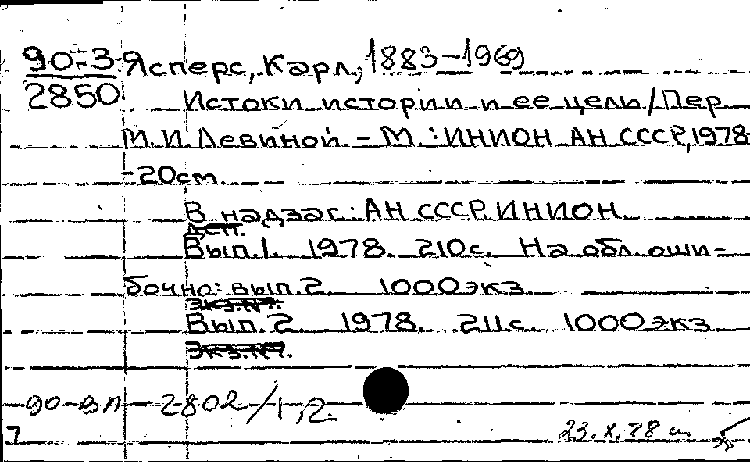 90-3 Ясперс, Карл, 1883-1969
2850 Истоки истории и ее цель / Пер
М.И. Левиной - М.: ИНИОН АН СССР, 1978
-20см.
В надзаг: АН СССР. ИНИОН
ДСП.
Вып. 1. 1978. 210с. На обл. оши-
бочно: вып. 2. 1000 экз
Экз.№7.
Вып. 2 1978. 211с. 1000 экз
Экз.№7.
90-ВЛ-2802/1,2.
7 23.X.78